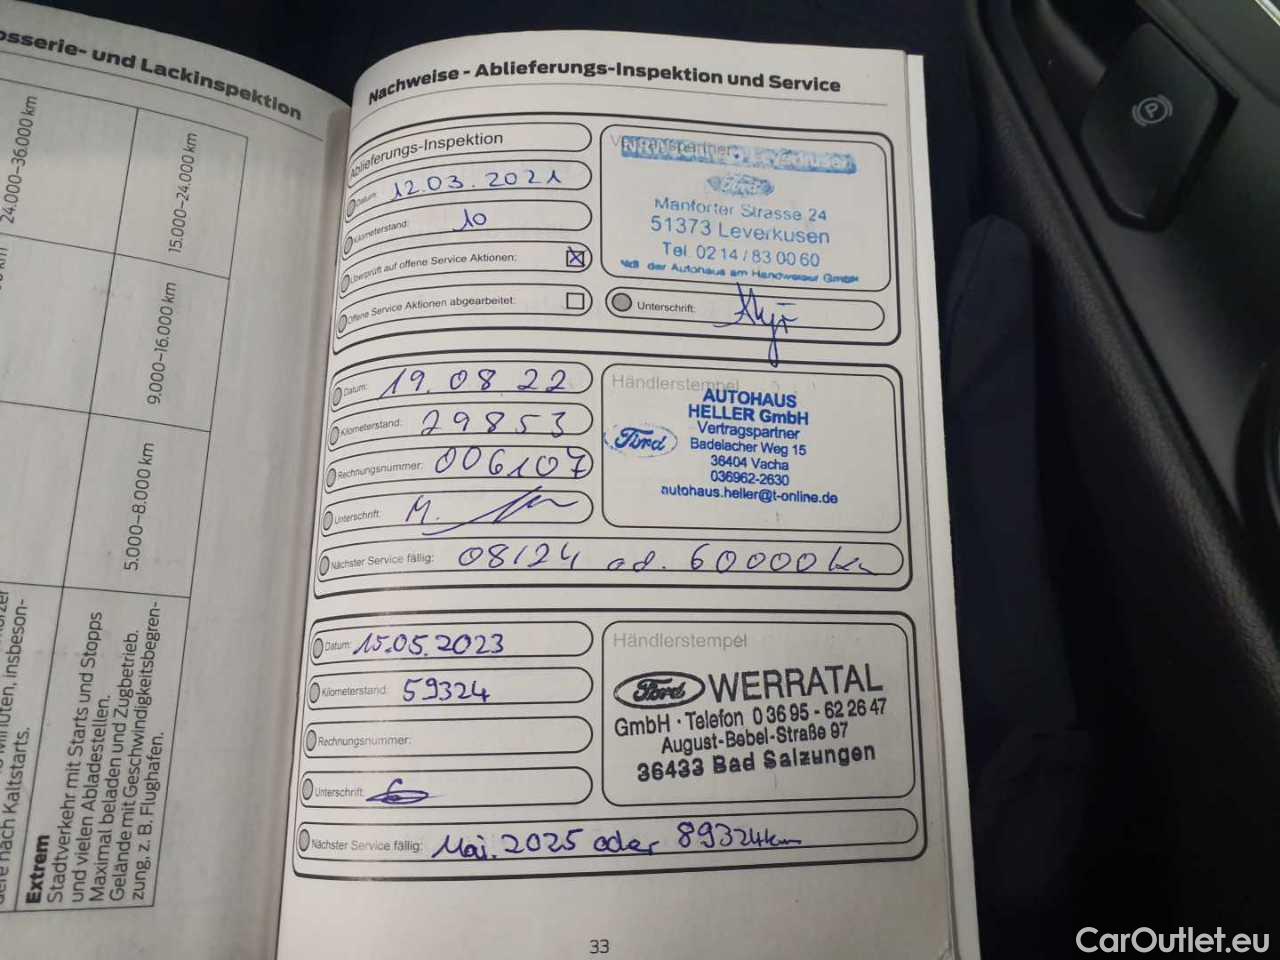 osserie- und Lackinspektion
24.000–36.000 km
15.000–24.000 km
9.000–16.000 km
5.000–8.000 km
Minuten, insbeson-
nach Kaltstarts.
Extrem
Stadtverkehr mit Starts und Stopps
und vielen Abladestellen.
Maximal beladen und Zugbetrieb.
Gelände mit Geschwindigkeitsbegren-
zung, z. B. Flughafen.
Nachweise - Ablieferungs-Inspektion und Service
Ablieferungs-Inspektion
Datum: 12.03.2021
Kilometerstand: 10
Überprüft auf offene Service Aktionen:
Offene Service Aktionen abgearbeitet:
Vertragspartner
Ford
Manforter Strasse 24
51373 Leverkusen
Tel. 0214/830060
der Autohaus am Handweiser GmbH
Unterschrift:
Datum: 19.08 22
Kilometerstand: 29853
Rechnungsnummer: 006107
Unterschrift:
Händlerstempel
AUTOHAUS
HELLER GmbH
Ford
Vertragspartner
Badelacher Weg 15
36404 Vacha
036962-2630
autohaus.heller@t-online.de
Nächster Service fällig: 08/24 od. 60000 km
Datum: 15.05.2023
Kilometerstand: 59324
Rechnungsnummer:
Unterschrift:
Händlerstempel
Ford WERRATAL
GmbH · Telefon 03695 - 622647
August-Bebel-Straße 97
36433 Bad Salzungen
Nächster Service fällig: Mai. 2025 oder 89324km
33
P
CarOutlet.eu